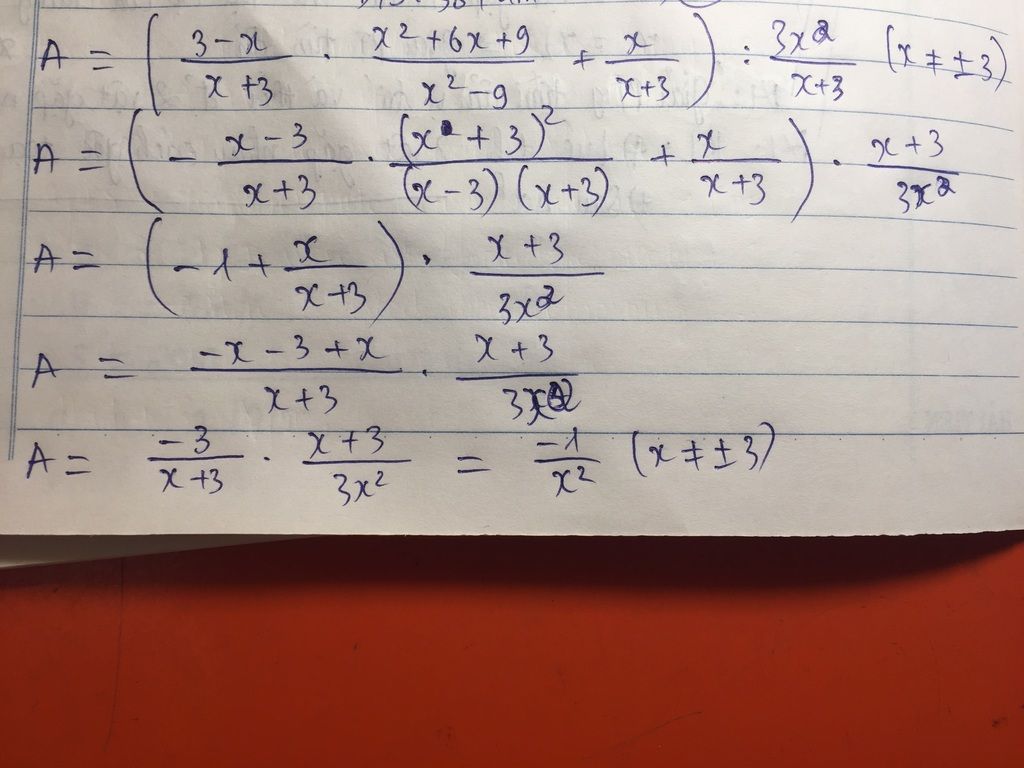 A = ( (3-x)/(x+3) · (x²+6x+9)/(x²-9) + x/(x+3) ) : 3x²/(x+3) (x ≠ ±3)
A = ( - (x-3)/(x+3) · (x+3)²/((x-3)(x+3)) + x/(x+3) ) · (x+3)/3x²
A = ( -1 + x/(x+3) ) · (x+3)/3x²
A = (-x-3+x)/(x+3) · (x+3)/3x²
A = -3/(x+3) · (x+3)/3x² = -1/x² (x ≠ ±3)